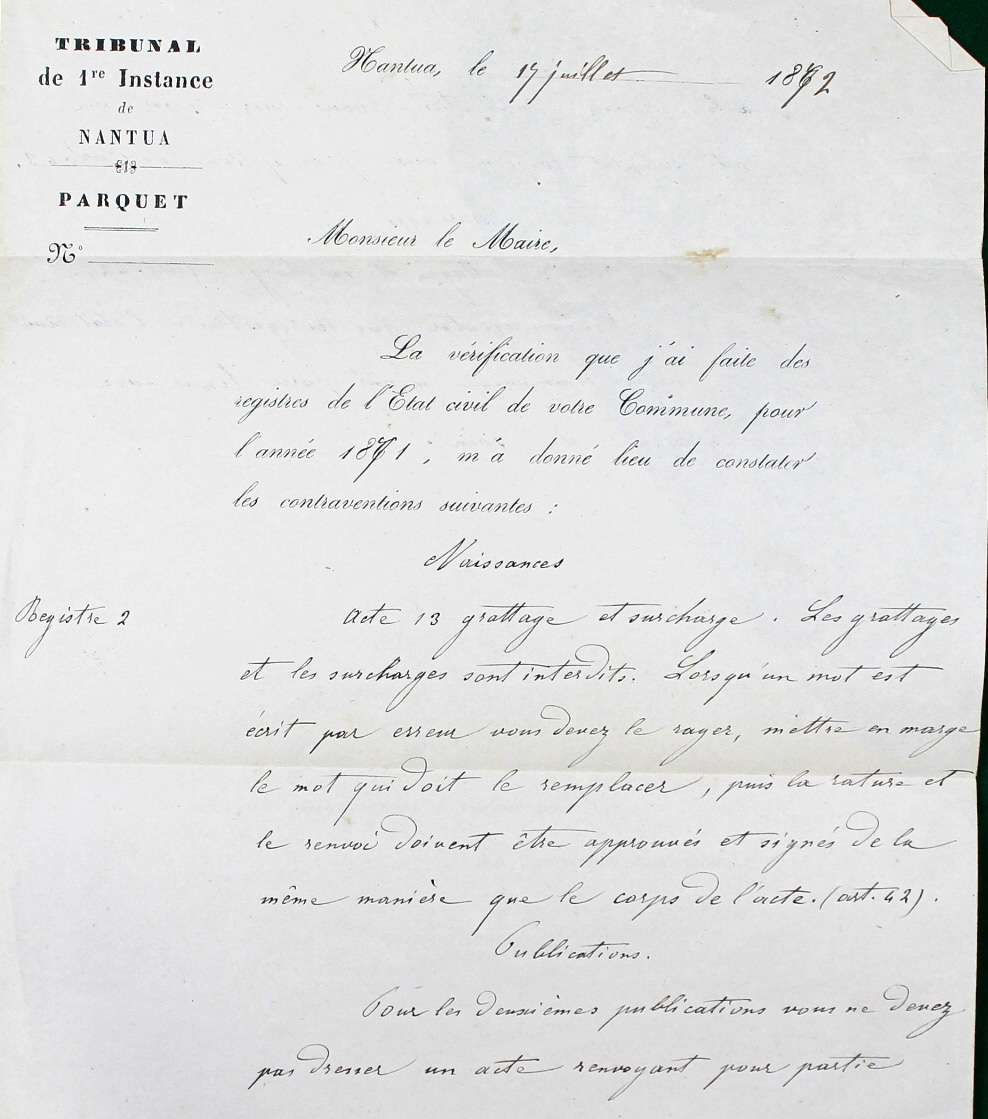 TRIBUNAL
de 1re Instance
de
NANTUA
PARQUET
N°
Nantua, le 17 juillet 1872
Monsieur le Maire,
La vérification que j'ai faite des
registres de l'Etat civil de votre Commune, pour
l'année 1871, m'a donné lieu de constater
les contraventions suivantes :
Naissances
Registre 2
Acte 13 grattage et surcharge. Les grattages
et les surcharges sont interdits. Lorsqu'un mot est
écrit par erreur vous devez le rayer, mettre en marge
le mot qui doit le remplacer, puis la rature et
le renvoi doivent être approuvés et signés de la
même manière que le corps de l'acte. (art. 42).
Publications.
Pour les deuxièmes publications vous ne devez
pas dresser un acte renvoyant pour partie